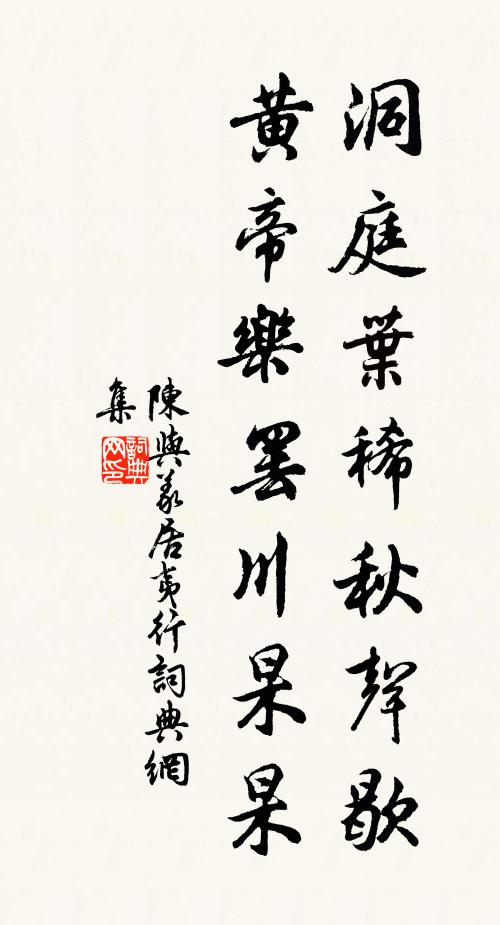 洞庭葉稀秋聲歇
黃帝樂罷川杲杲
陳與義居夷行詞典網
集
詞典网印